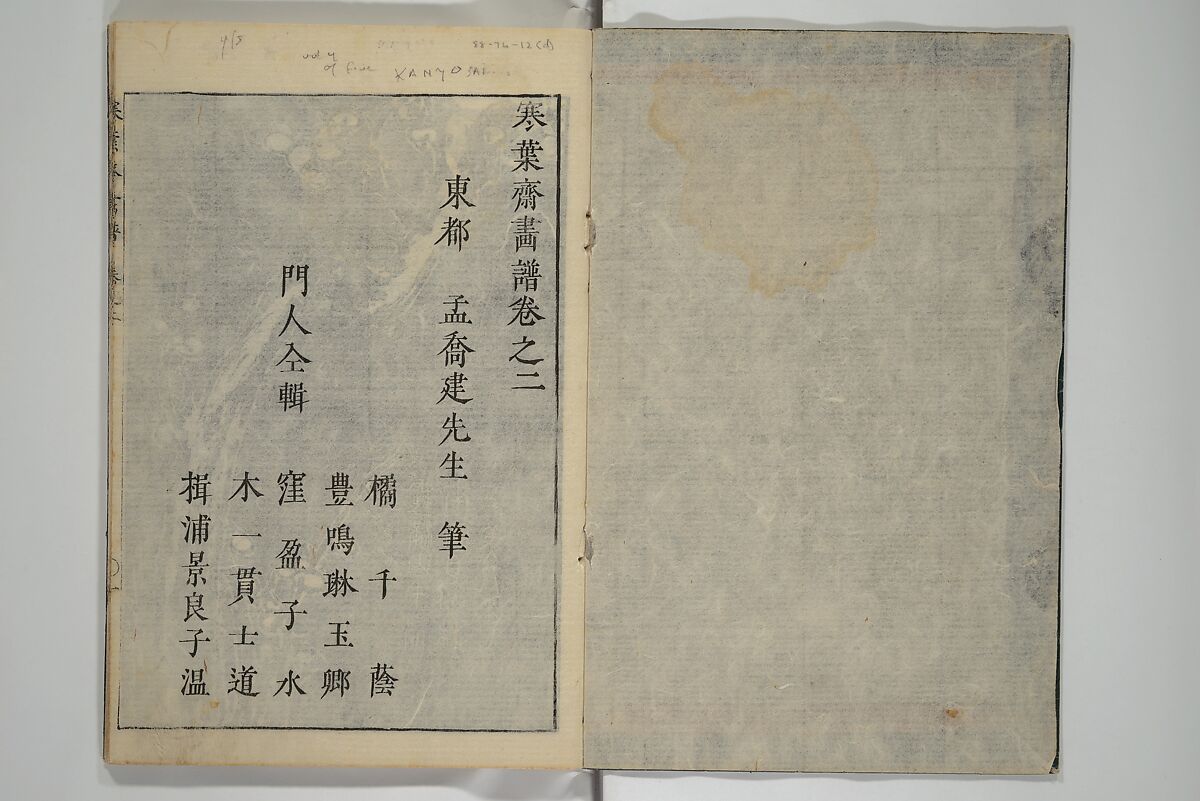 寒葉齋畫譜卷之二
東都 孟喬建先生 筆
門人仝輯
橘 千 蔭
豊鳴琳玉卿
窪 盈子水
木一貫士道
揖浦景良子温
vol 4
of five KANYOSAI